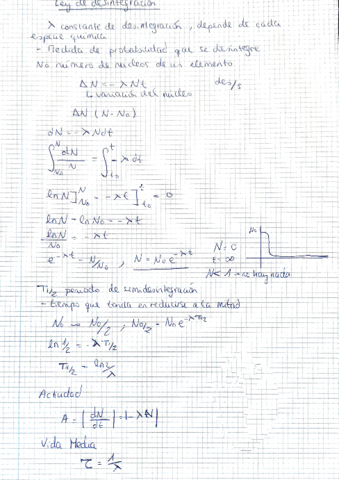 Ley de desintegración
λ constante de desintegración, depende de cada
especie química
- Medida de probabilidad que se desintegre
No número de núcleos de un elemento
ΔN = -λNt des/s
↳ variación del núcleo
ΔN (N-No)
dN = -λNdt
∫_{No}^{N} dN/N = ∫_{to}^{t} -λ dt
lnN]_{No}^{N} = -λt]_{to}^{t} = 0
lnN - lnNo = -λt
lnN/No = -λt
e^{-λt} = N/No , N = No e^{-λt}
No
N = 0
t = ∞
N < 1 no hay nada
T1/2 periodo de semidesintegración
- tiempo que tarda en reducirse a la mitad
No → No/2 , No/2 = No e^{-λT1/2}
ln 1/2 = -λT1/2
T1/2 = ln2/λ
Actividad
A = |dN/dt| = |-λN|
Vida Media
τ = 1/λ